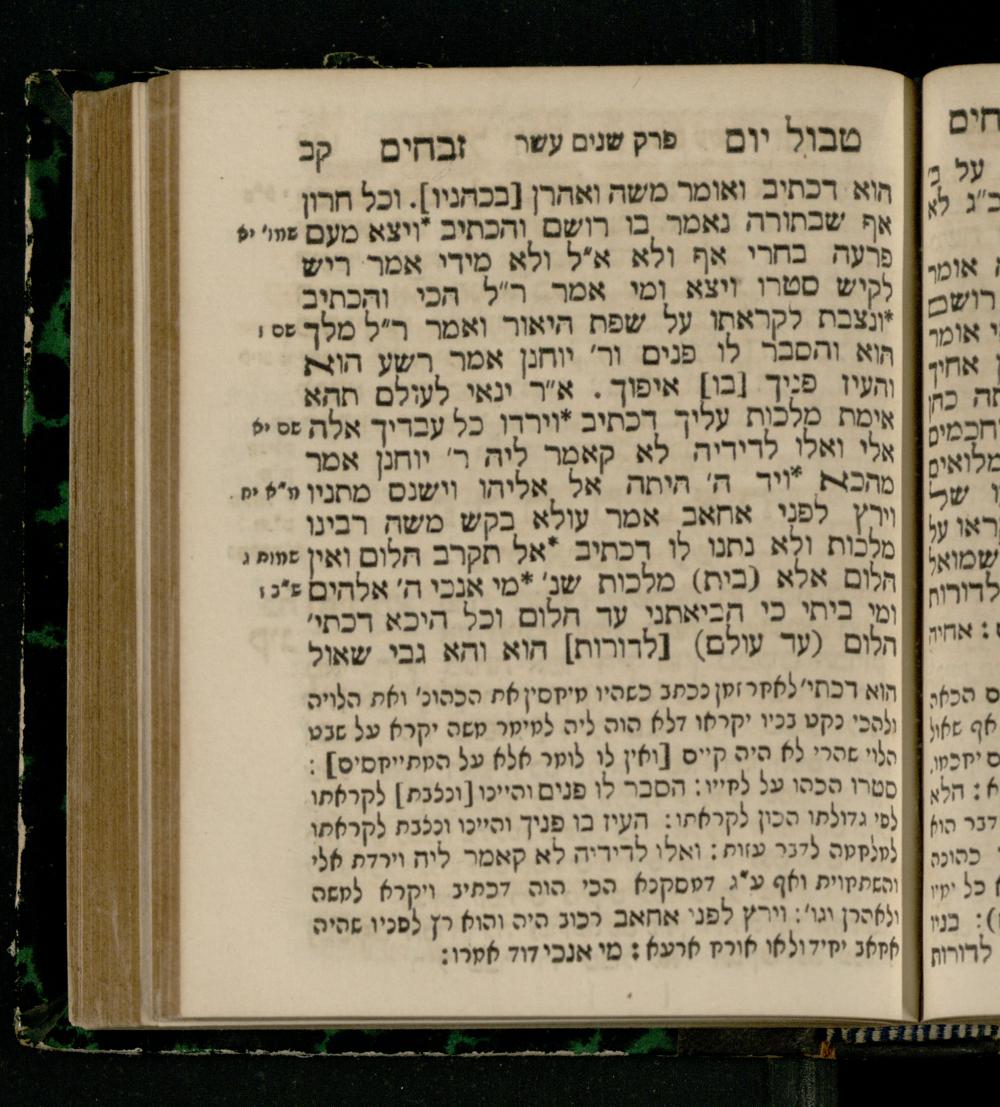 טבול יום פרק שנים עשר זבחים קב
הוא דכתיב ואומר משה ואהרן [בכהניו]. וכל חרון
אף שבתורה נאמר בו רושם והכתיב *ויצא מעם שמו' יא
פרעה בחרי אף ולא א"ל ולא מידי אמר ריש
לקיש סטרו ויצא ומי אמר ר"ל הכי והכתיב
*ונצבת לקראתו על שפת היאור ואמר ר"ל מלך שם ז
הוא והסבר לו פנים ור' יוחנן אמר רשע הוא
והעיז פניך [בו] איפוך. א"ר ינאי לעולם תהא
אימת מלכות עליך דכתיב *וירדו כל עבדיך אלה שם יא
אלי ואלו לדידיה לא קאמר ליה ר' יוחנן אמר
מהכא *ויד ה' היתה אל אליהו וישנס מתניו מ"א יח
וירץ לפני אחאב אמר עולא בקש משה רבינו
מלכות ולא נתנו לו דכתיב *אל תקרב הלום ואין שמות ג
הלום אלא (בית) מלכות שנ' *מי אנכי ה' אלהים ש"ב ז
ומי ביתי כי הביאתני עד הלום וכל היכא דכתי'
הלום (עד עולם) [לדורות] הוא והא גבי שאול
הוא דכתי' לאחר זמן ככתב כשהיו מיחסין את הכהונ' ואת הלויה
ולהכי נקט בניו יקראו דלא הוה ליה למימר משה יקרא על שבט
הלוי שהרי לא היה קיים [ואין לו לומר אלא על המתייחסים]:
סטרו הכהו על לחייו: הסבר לו פנים והיינו [ונצבת] לקראתו
לפי גדולתו הכון לקראתו: העיז בו פניך והיינו ונצבת לקראתו
למלחמה לדבר עזות: ואלו לדידיה לא קאמר ליה וירדת אלי
והשתחוית ואף ע"ג דמסקנא הכי הוה דכתיב ויקרא למשה
ולאהרן וגו': וירץ לפני אחאב רכוב היה והוא רץ לפניו שהיה
אחאב יחיד ולאו אורח ארעא: מי אנכי דוד אמרו:
חים
על
לא
אומר
רושם
אומר
אחיך
כהן
וחכמים
מלואים
של
קראו על
שמואל
לדורות
: אחיה
הכאה
אף שאול
: הלא
דבר הוא
כהונה
כל ימיו
): בניו
לדורות